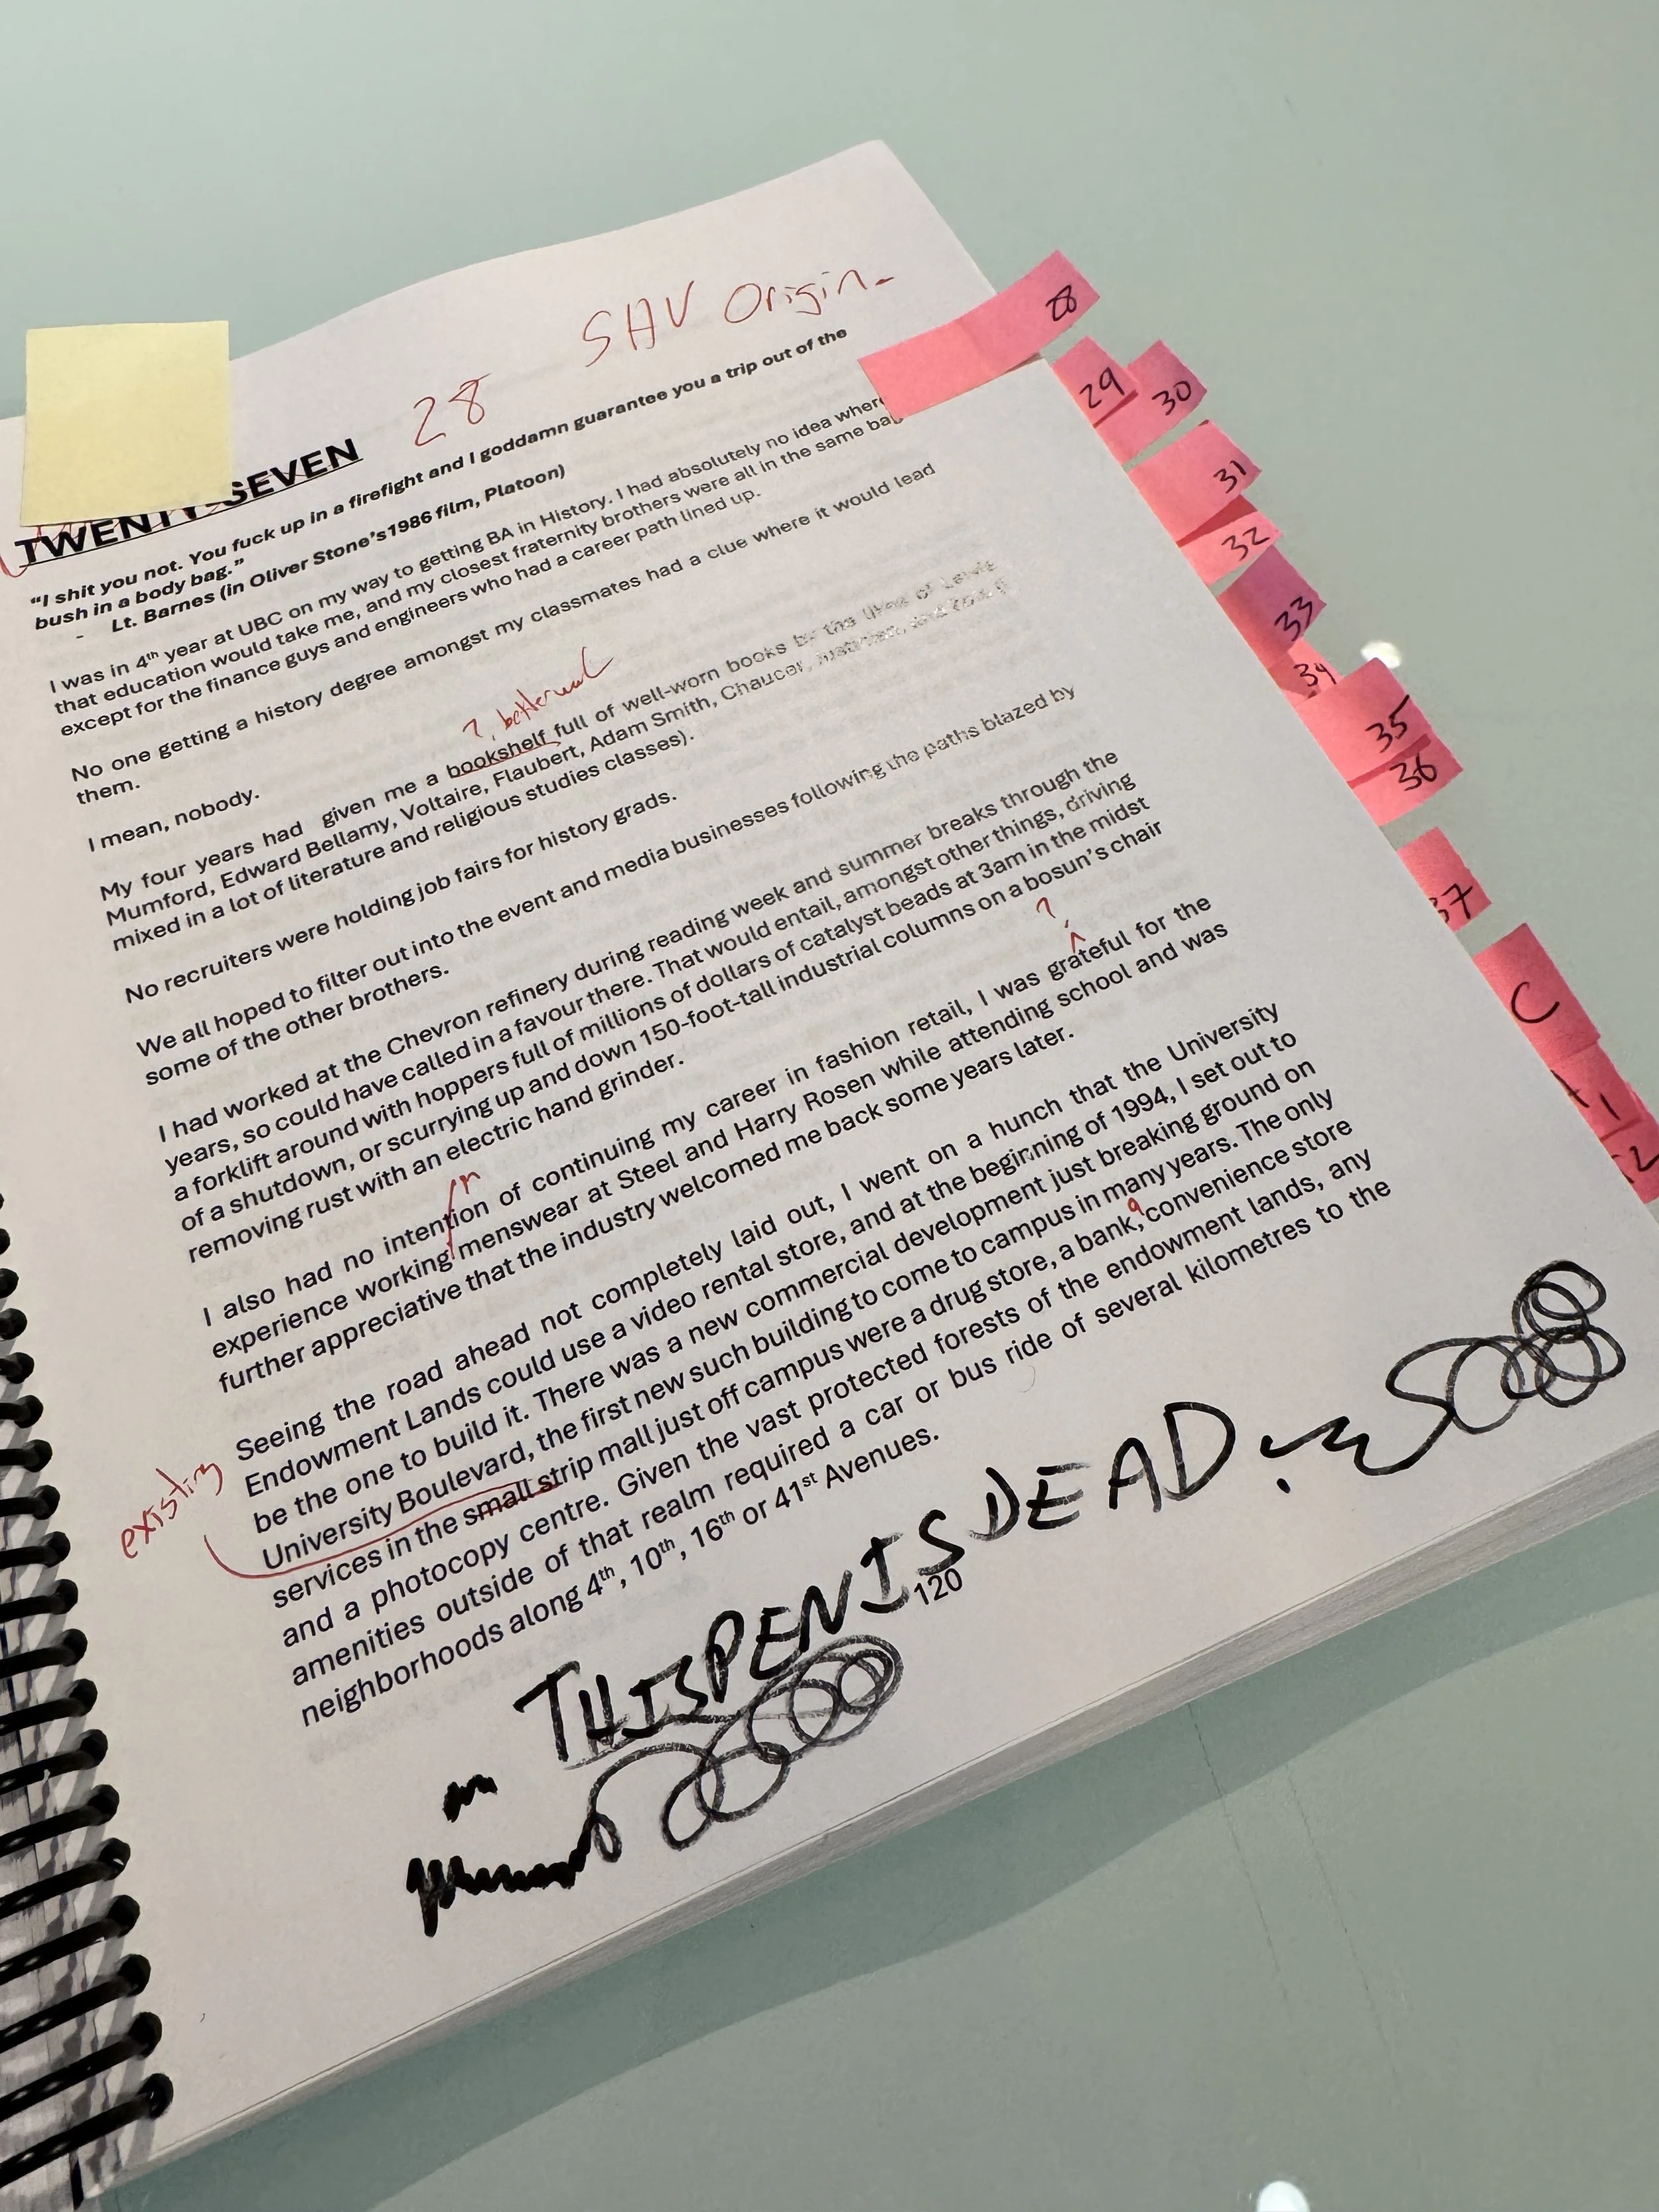 SAV Origin-
28
TWENTY-SEVEN
“I shit you not. You fuck up in a firefight and I goddamn guarantee you a trip out of the
bush in a body bag.”
- Lt. Barnes (in Oliver Stone's1986 film, Platoon)
I was in 4th year at UBC on my way to getting BA in History. I had absolutely no idea where
that education would take me, and my closest fraternity brothers were all in the same bag
except for the finance guys and engineers who had a career path lined up.
No one getting a history degree amongst my classmates had a clue where it would lead
them.
I mean, nobody.
?,
My four years had given me a bookshelf full of well-worn books by the likes of Lewis
Mumford, Edward Bellamy, Voltaire, Flaubert, Adam Smith, Chaucer,
mixed in a lot of literature and religious studies classes).
No recruiters were holding job fairs for history grads.
We all hoped to filter out into the event and media businesses following the paths blazed by
some of the other brothers.
I had worked at the Chevron refinery during reading week and summer breaks through the
years, so could have called in a favour there. That would entail, amongst other things, driving
a forklift around with hoppers full of millions of dollars of catalyst beads at 3am in the midst
of a shutdown, or scurrying up and down 150-foot-tall industrial columns on a bosun's chair
removing rust with an electric hand grinder.
?
I also had no intention of continuing my career in fashion retail, I was grateful for the
experience working menswear at Steel and Harry Rosen while attending school and was
further appreciative that the industry welcomed me back some years later.
Seeing the road ahead not completely laid out, I went on a hunch that the University
Endowment Lands could use a video rental store, and at the beginning of 1994, I set out to
be the one to build it. There was a new commercial development just breaking ground on
University Boulevard, the first new such building to come to campus in many years. The only
existing
services in the small strip mall just off campus were a drug store, a bank, a convenience store
and a photocopy centre. Given the vast protected forests of the endowment lands, any
amenities outside of that realm required a car or bus ride of several kilometres to the
neighborhoods along 4th, 10th, 16th or 41st Avenues.
THIS PEN IS DEAD!
120
28
29
30
31
32
33
34
35
36
37
C
1
2